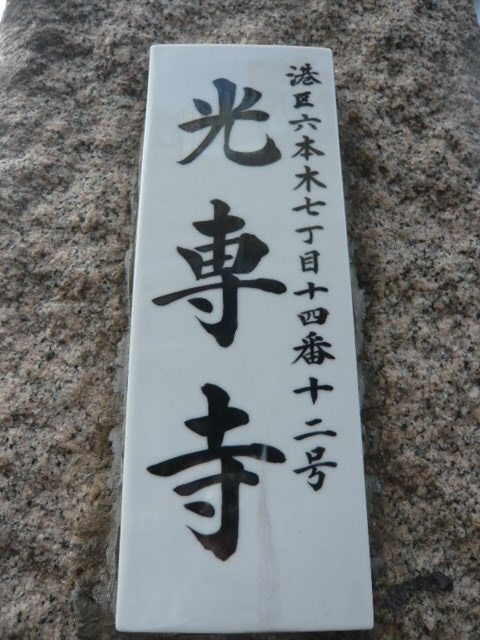 港区六本木七丁目十四番十二号
光専寺